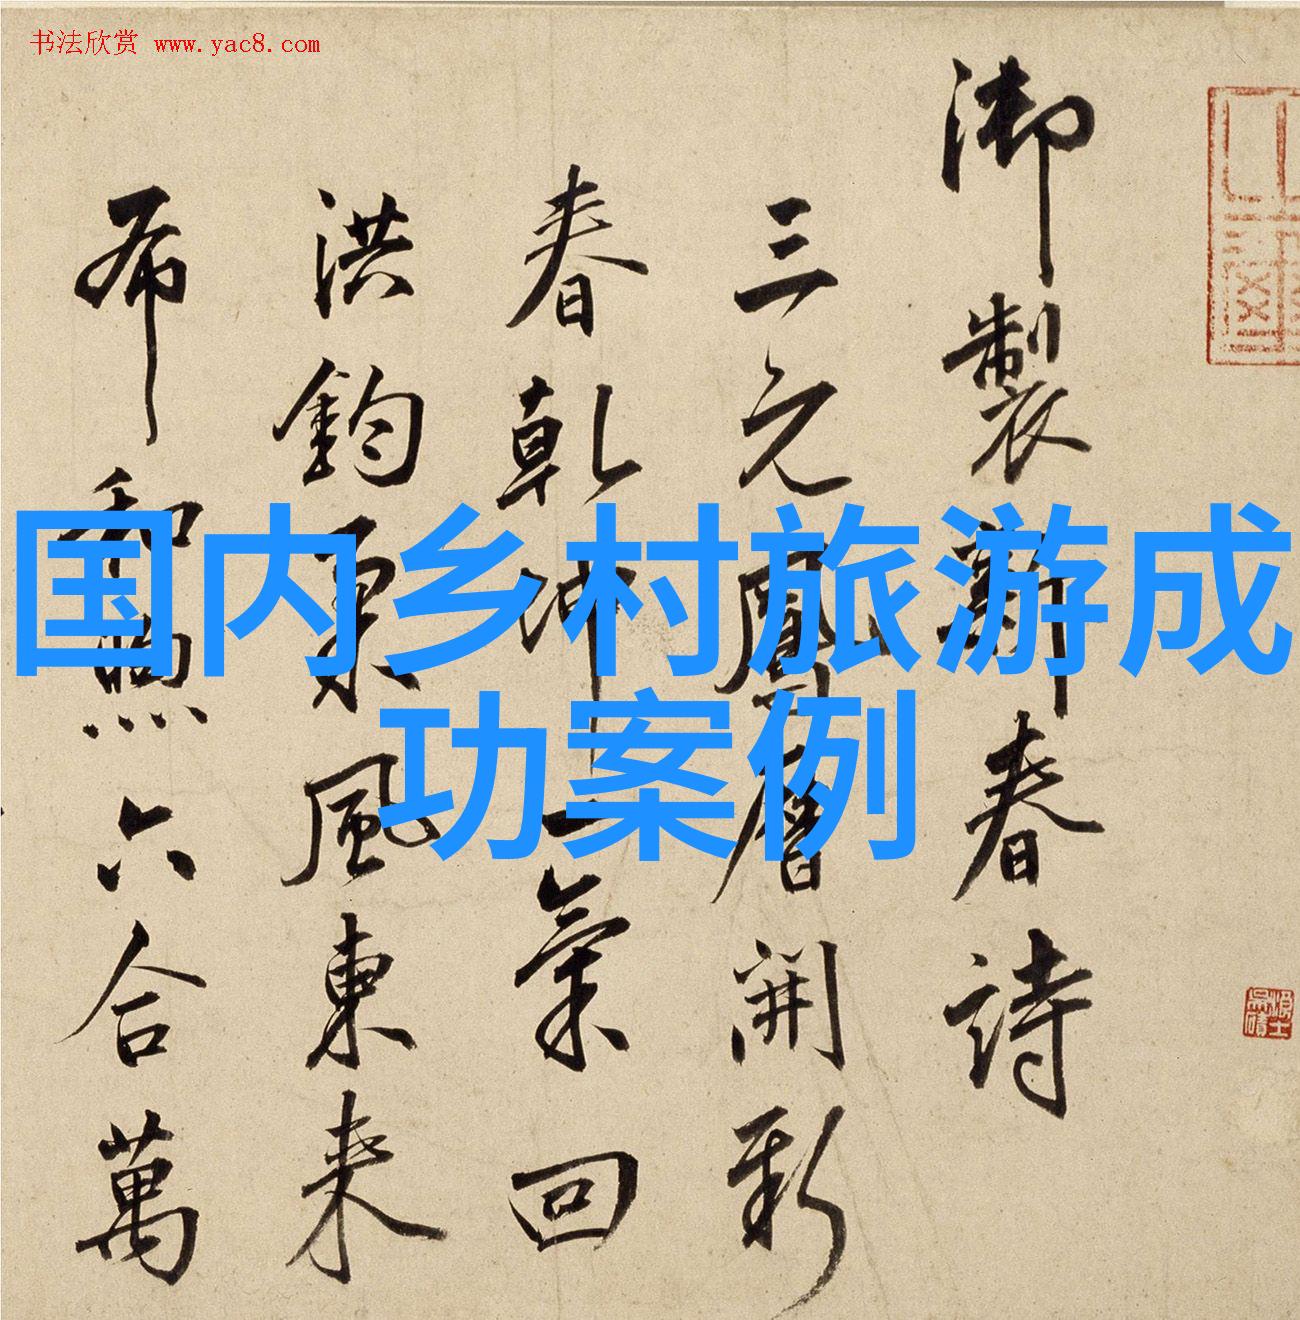 书法欣赏 www.yac8.com
国内乡村旅游成
功案例
御製新春詩
三元鳳曆開新
春乾坤一氣回
洪鈞風東来
布和煦六合萬